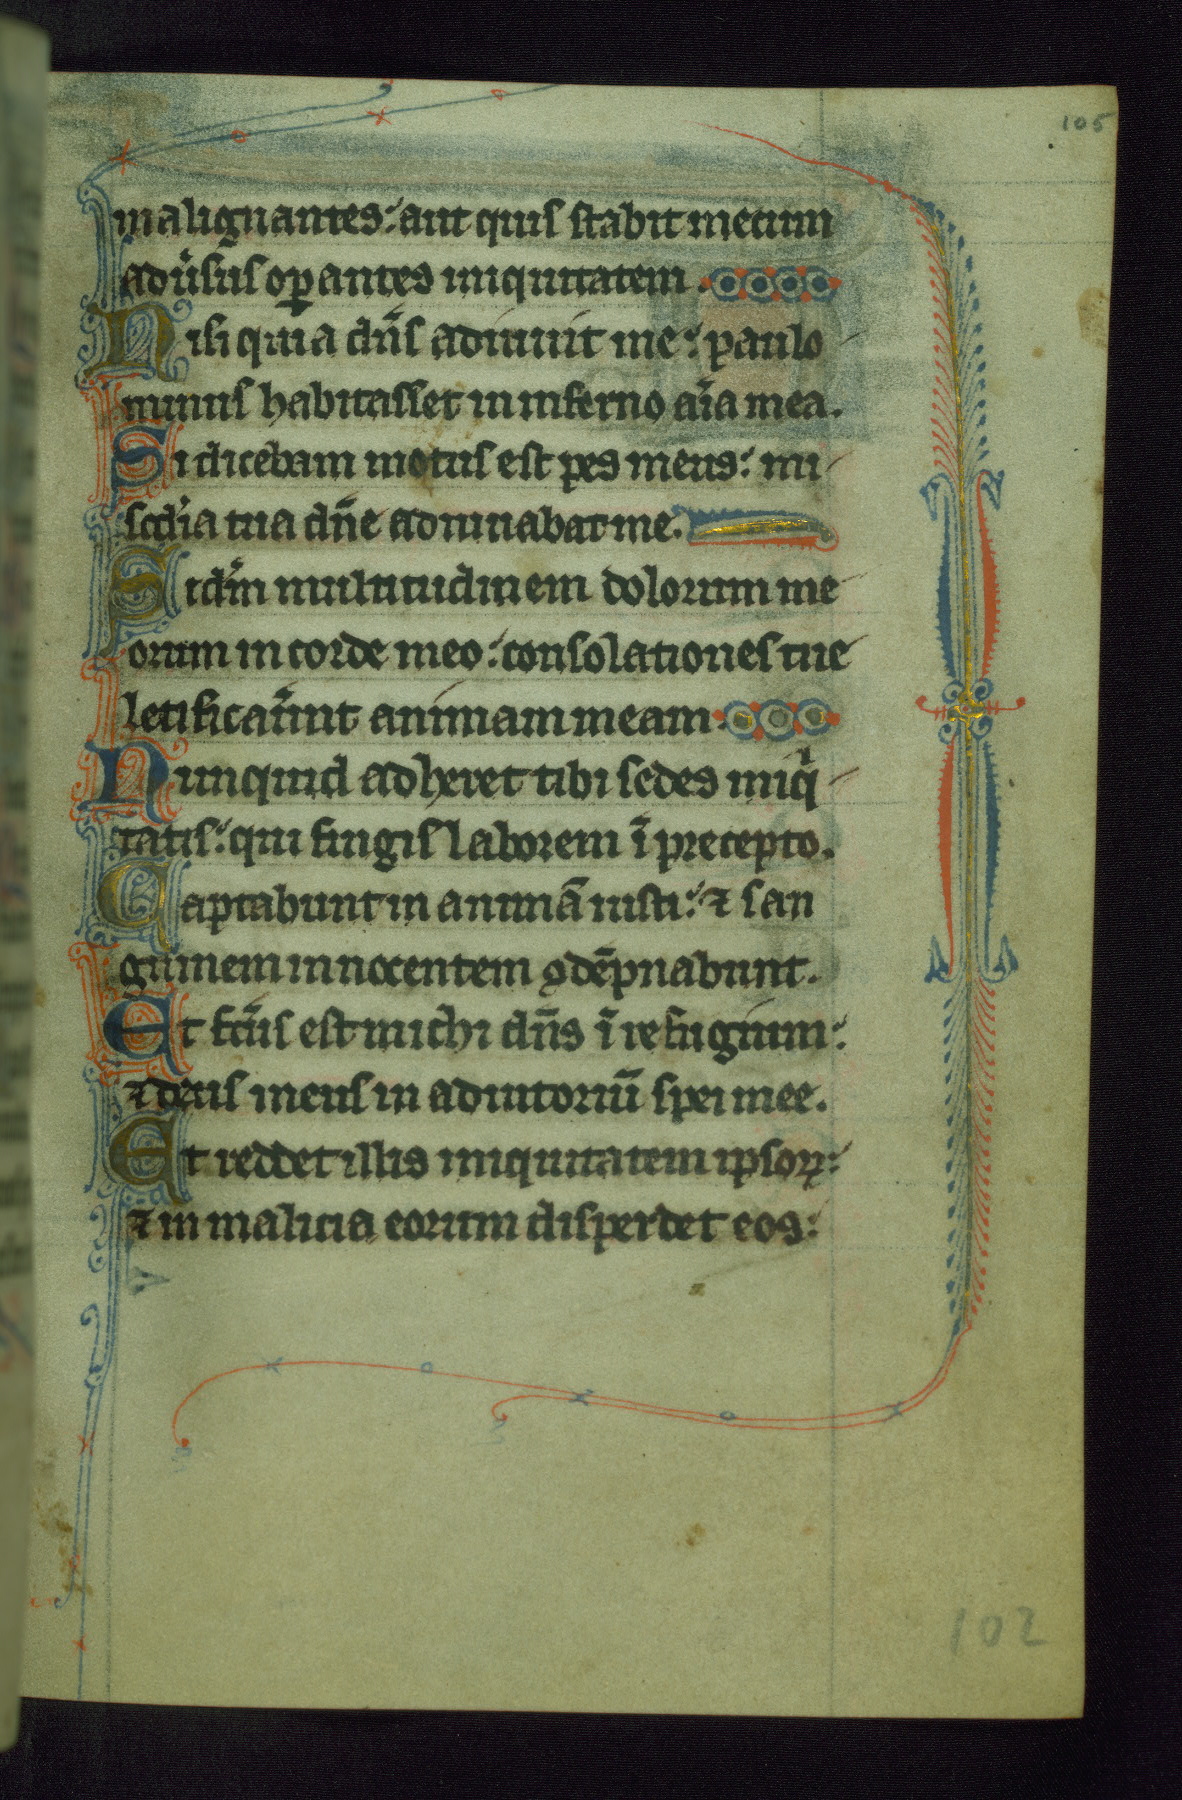 105
malignantes: aut quis stabit mecum
adu̾sus oꝑantes iniquitatem.
Nisi quia dn̄s adiuuit me: paulo
minus habitasset in inferno aīa mea.
Si dicebam motus est pes meus: mi
scd̾ia tua dn̄e adiuuabat me.
Scd̾m multitudinem dolorum me
orum in corde meo: consolationes tue
letificau̾unt animam meam.
Nunquid adheret tibi sedes iniqⁱ
tatis: qui fingis laborem ī precepto.
Captabunt in animā iusti: ⁊ san
guinem innocentem ꝯdēpnabunt.
Et fc̄us est michi dn̄s ī refugium:
⁊ deus meus in adiutoriū spei mee.
Et reddet illis iniquitatem ipsoꝝ:
⁊ in malicia eorum disperdet eos:
102